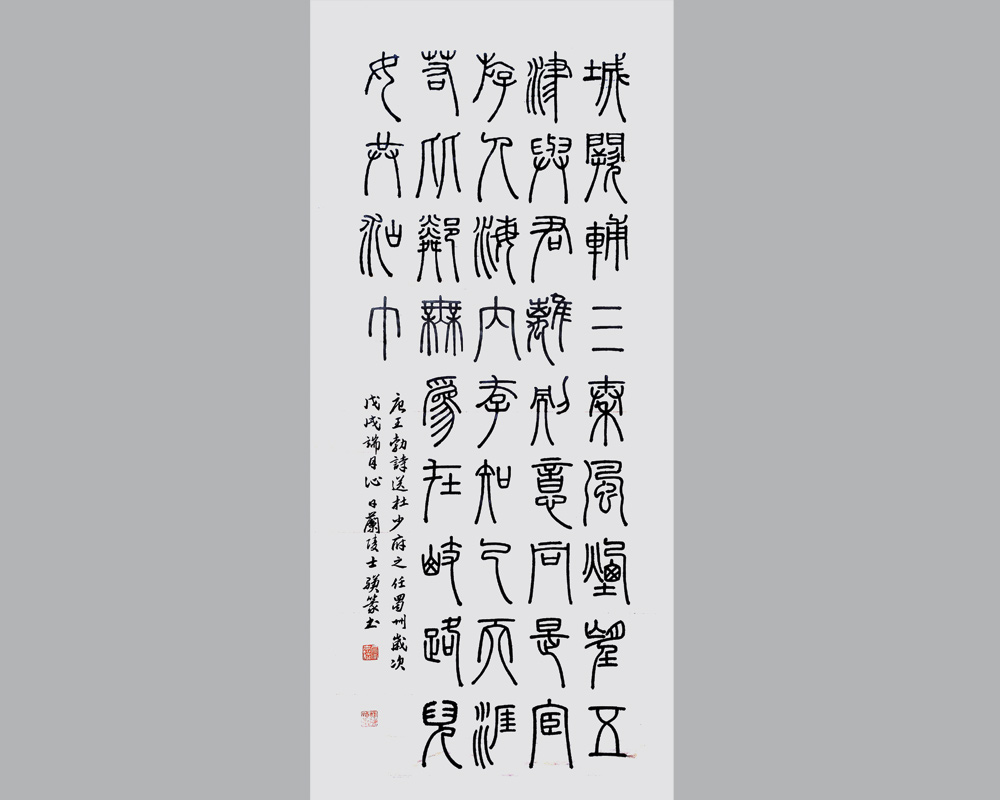 城闕輔三秦風煙望五
津與君離別意同是宦
斿人海內存知己天涯
若比鄰無為在岐路兒
女共沾巾
唐王勃詩送杜少府之任蜀州歲次
戊戌端月沁日蘭陵士篆書